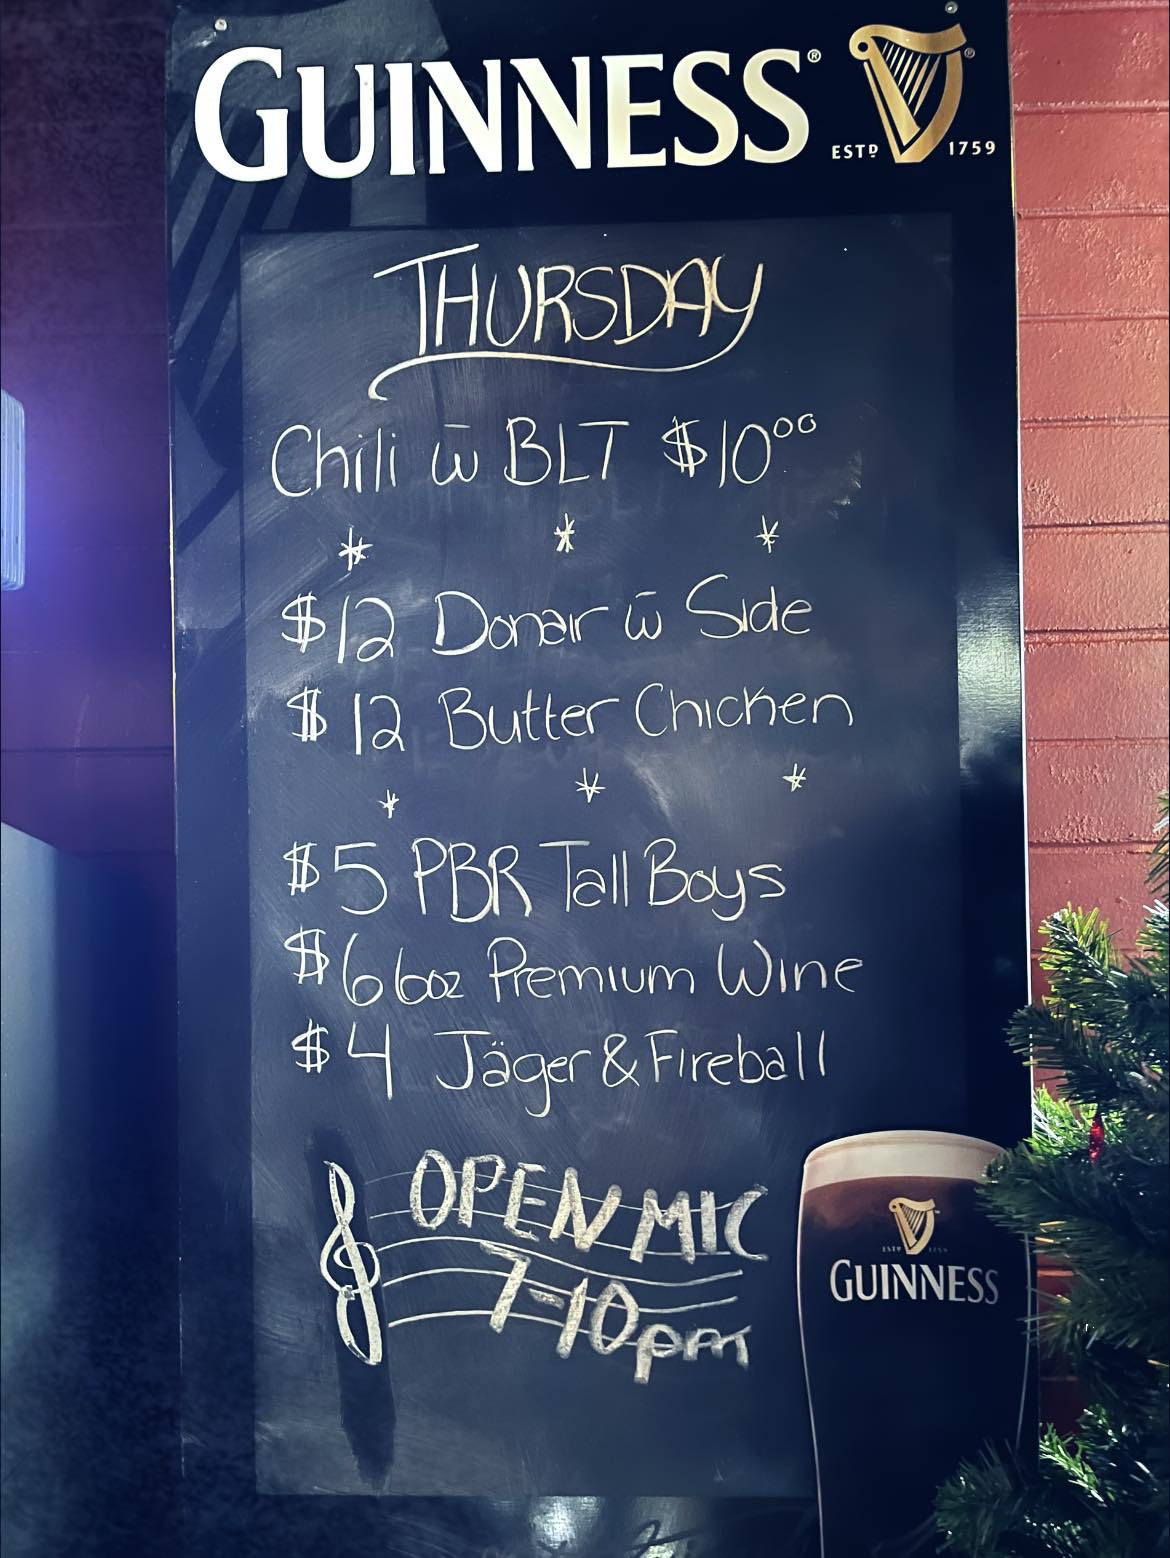 GUINNESS®
ESTD 1759
THURSDAY
Chili w̄ BLT $10⁰⁰
* * *
$12 Donair w̄ Side
$12 Butter Chicken
* * *
$5 PBR Tall Boys
$6 6oz Premium Wine
$4 Jäger & Fireball
OPEN MIC
7-10pm
ESTD 1759
GUINNESS